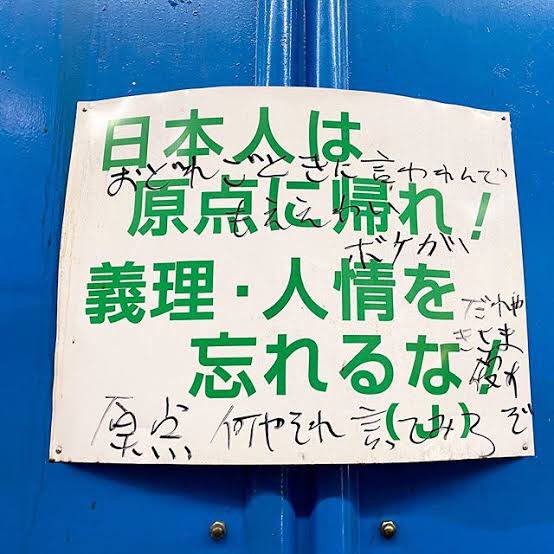 日本人は
おどれごときに言われんで
原点に帰れ!
もええわい
ボケが
義理・人情を
だれや
きさま
忘れるな!
原点 何やそれ 言てみろ